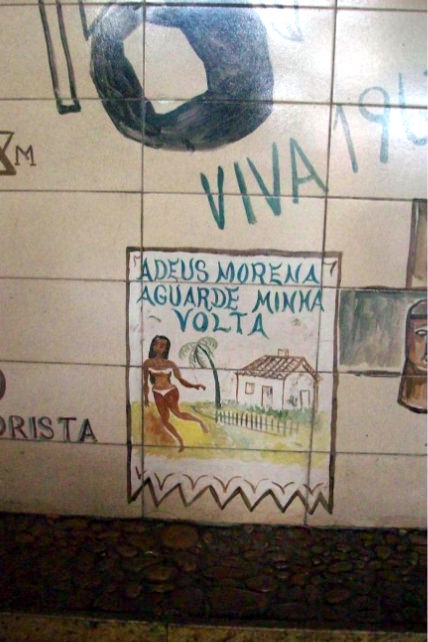 VIVA 196
M
ADEUS MORENA
AGUARDE MINHA
VOLTA
ORISTA